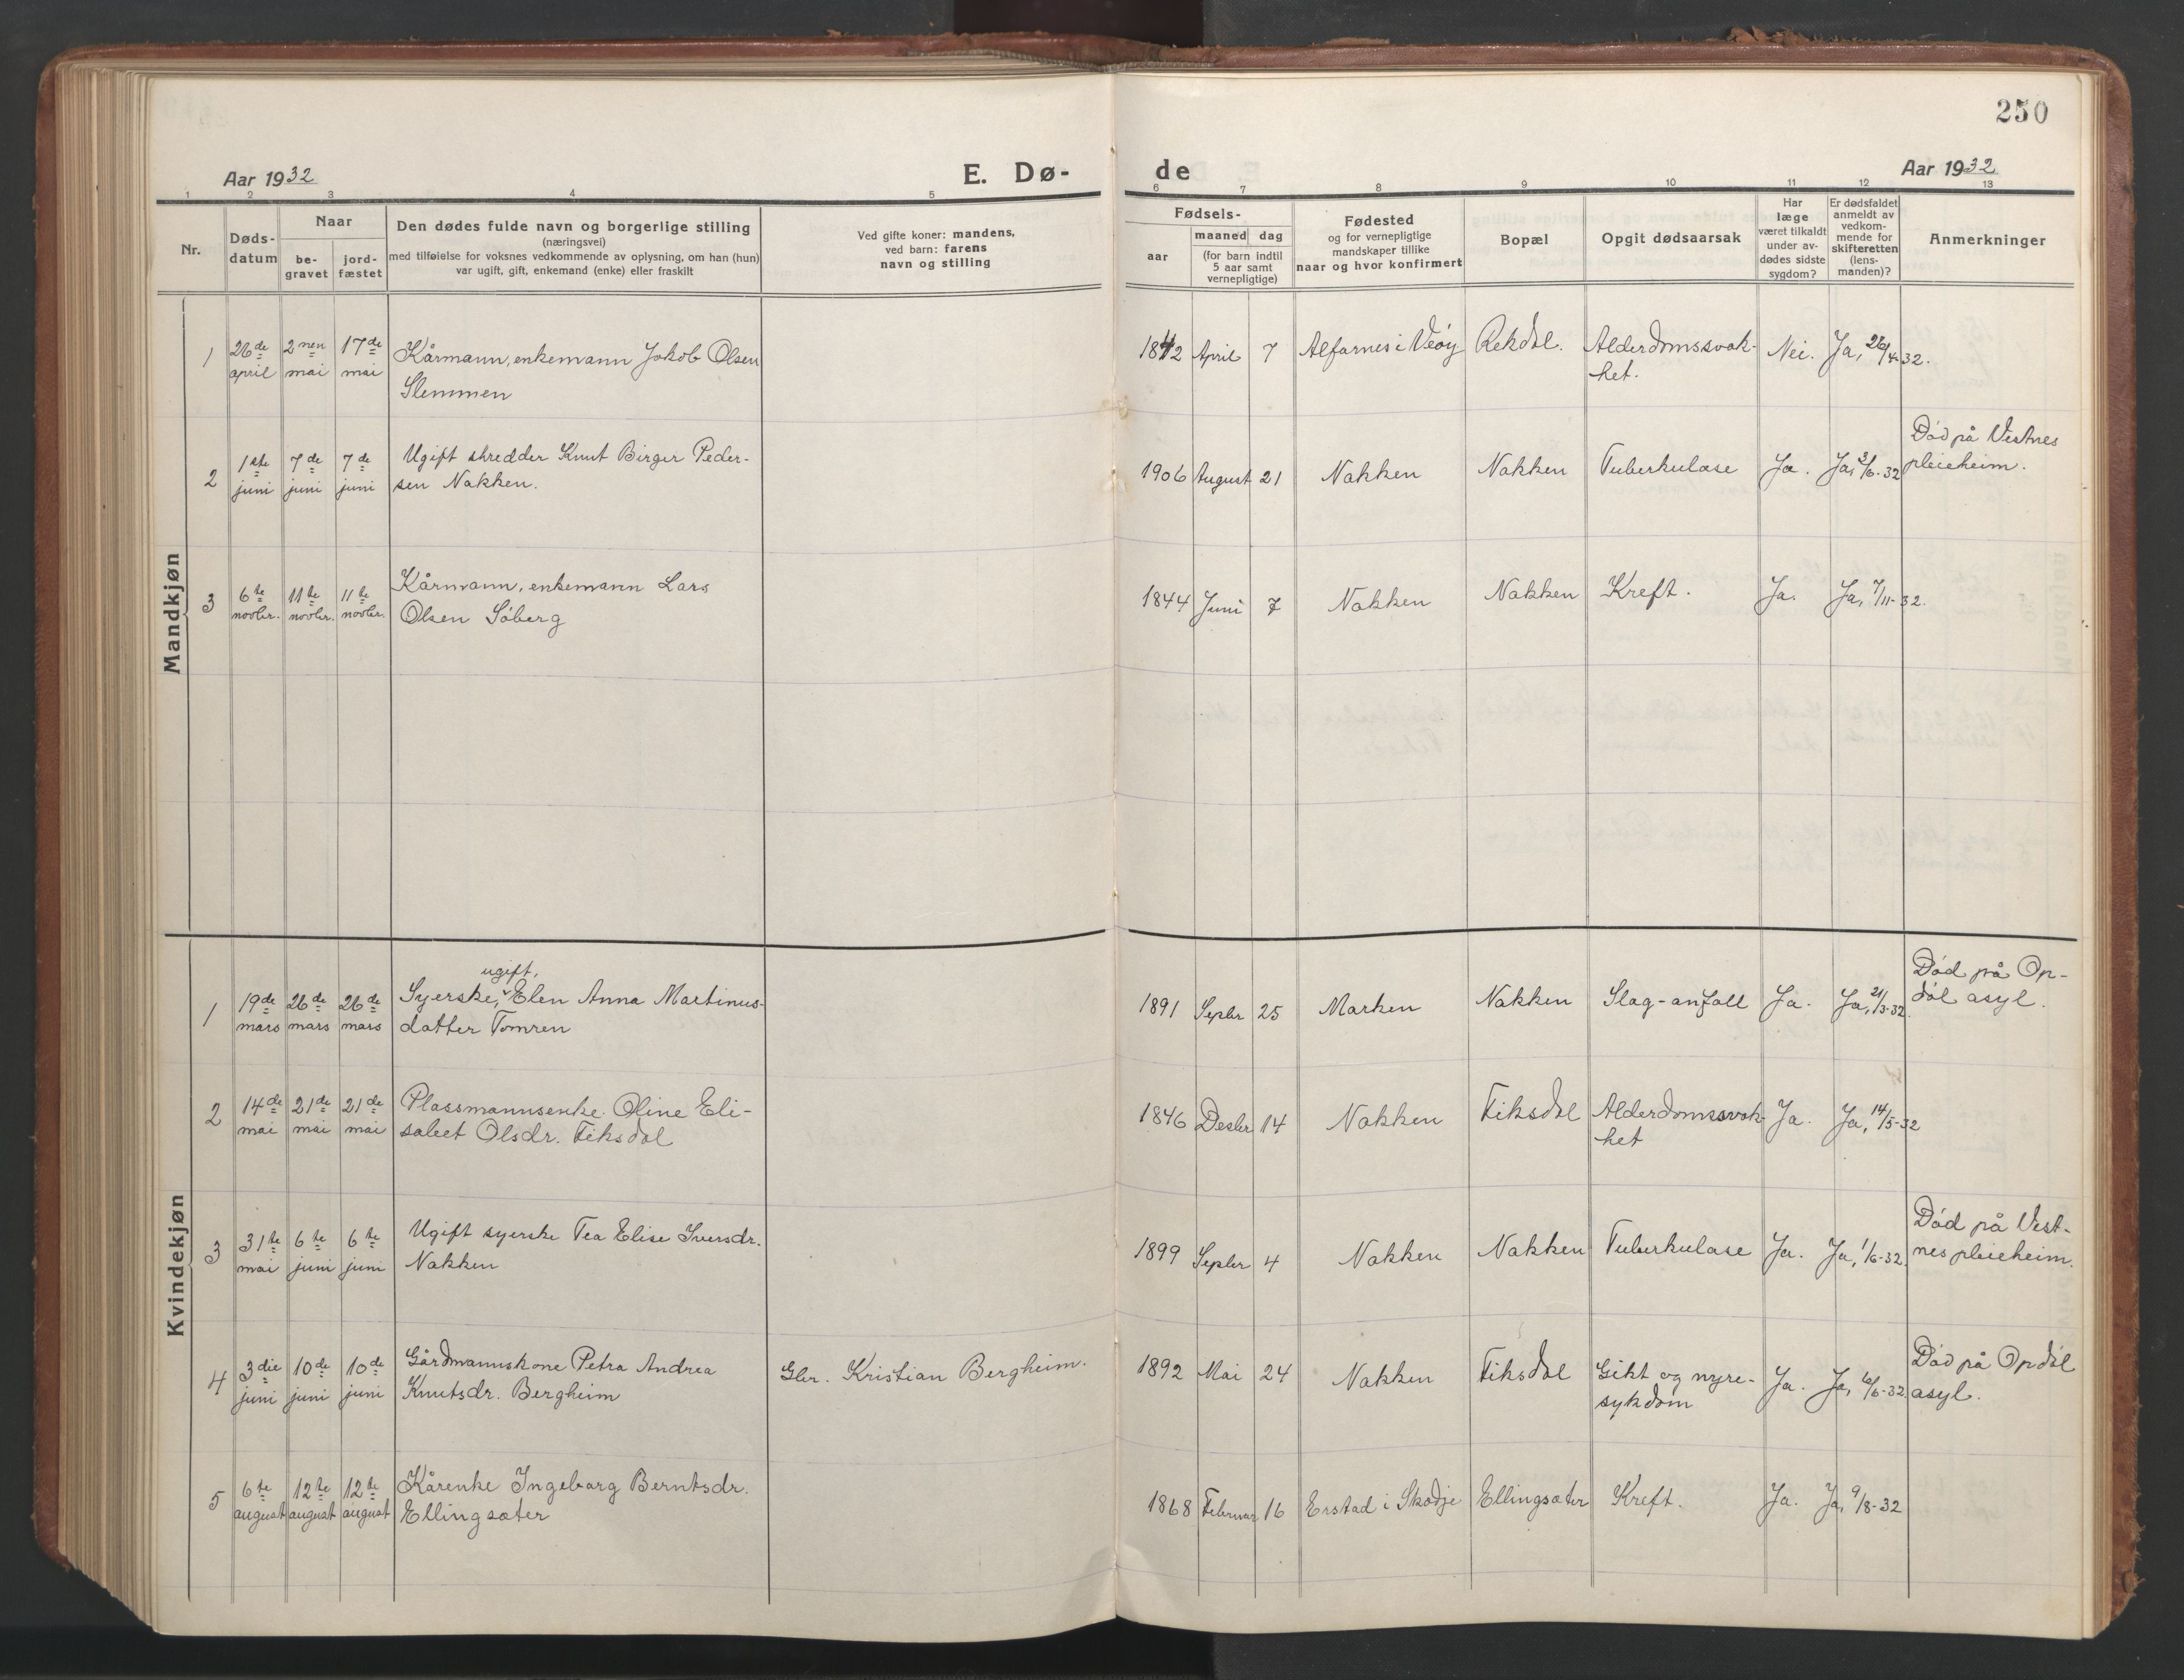 250
Aar 1932
E. Dø-
de
Aar 1932
1 2 3 4 5 6 7 8 9 10 11 12 13
Nr.
Døds-
datum
Naar
be-
gravet
jord-
fæstet
Den dødes fulde navn og borgerlige stilling
(næringsvei)
med tilføielse for voksnes vedkommende av oplysning, om han (hun)
var ugift, gift, enkemand (enke) eller fraskilt
Ved gifte koner: mandens,
ved barn: farens
navn og stilling
Fødsels-
aar
maaned dag
(for barn indtil
5 aar samt
vernepligtige)
Fødested
og for vernepligtige
mandskaper tillike
naar og hvor konfirmert
Bopæl
Opgit dødsaarsak
Har
læge
været tilkaldt
under av-
dødes sidste
sygdom?
Er dødsfaldet
anmeldt av
vedkom-
mende for
skifteretten
(lens-
manden)?
Anmerkninger
Mandkjøn
1 26de april 2nen mai 17de mai
Kårmann, enkemann Jakob Olsen
Slemmen
1842 April 7 Alfarnes i Veøy Rekdal. Alderdomssvak-
het.
Nei. Ja, 26/4-32.
2 1ste juni 7de juni 7de juni
Ugift skredder Knut Birger Peder-
sen Nakken.
1906 August 21 Nakken Nakken Tuberkulose Ja. Ja, 3/6-32
Død på Vestnes
pleieheim.
3 6te novbr. 11te novbr. 11te novbr.
Kårmann, enkemann Lars
Olsen Søberg
1844 Juni 7 Nakken Nakken Kreft. Ja. Ja, 7/11-32.
Kvindekjøn
1 19de mars 26de mars 26de mars
ugift,
Syerske, Elen Anna Martinus-
datter Tomren
1891 Septbr 25 Marken Nakken Slag-anfall Ja. Ja, 21/3-32
Død på Op-
døl asyl.
2 14de mai 21de mai 21de mai
Plassmannsenke. Oline Eli-
sabet Olsdr. Fiksdal
1846 Desbr 14 Nakken Fiksdal Alderdomssvak-
het
Ja. Ja, 14/5-32
3 31te mai 6te juni 6te juni
Ugift syerske Tea Elise Iversdr.
Nakken
1899 Septbr 4 Nakken Nakken Tuberkulose Ja. Ja, 1/6-32.
Død på Vest-
nes pleieheim.
4 3die juni 10de juni 10de juni
Gårdmannskone Petra Andrea
Knutsdr. Bergheim
Gbr. Kristian Bergheim.
1892 Mai 24 Nakken Fiksdal Gikt og nyre-
sykdom
Ja. Ja, 6/6-32.
Død på Opdøl
asyl.
5 6te august 12te august 12te august
Kårenke Ingeborg Berntsdr.
Ellingsæter
1868 Februar 16 Erstad i Skodje Ellingsæter Kreft. Ja. Ja, 9/8-32